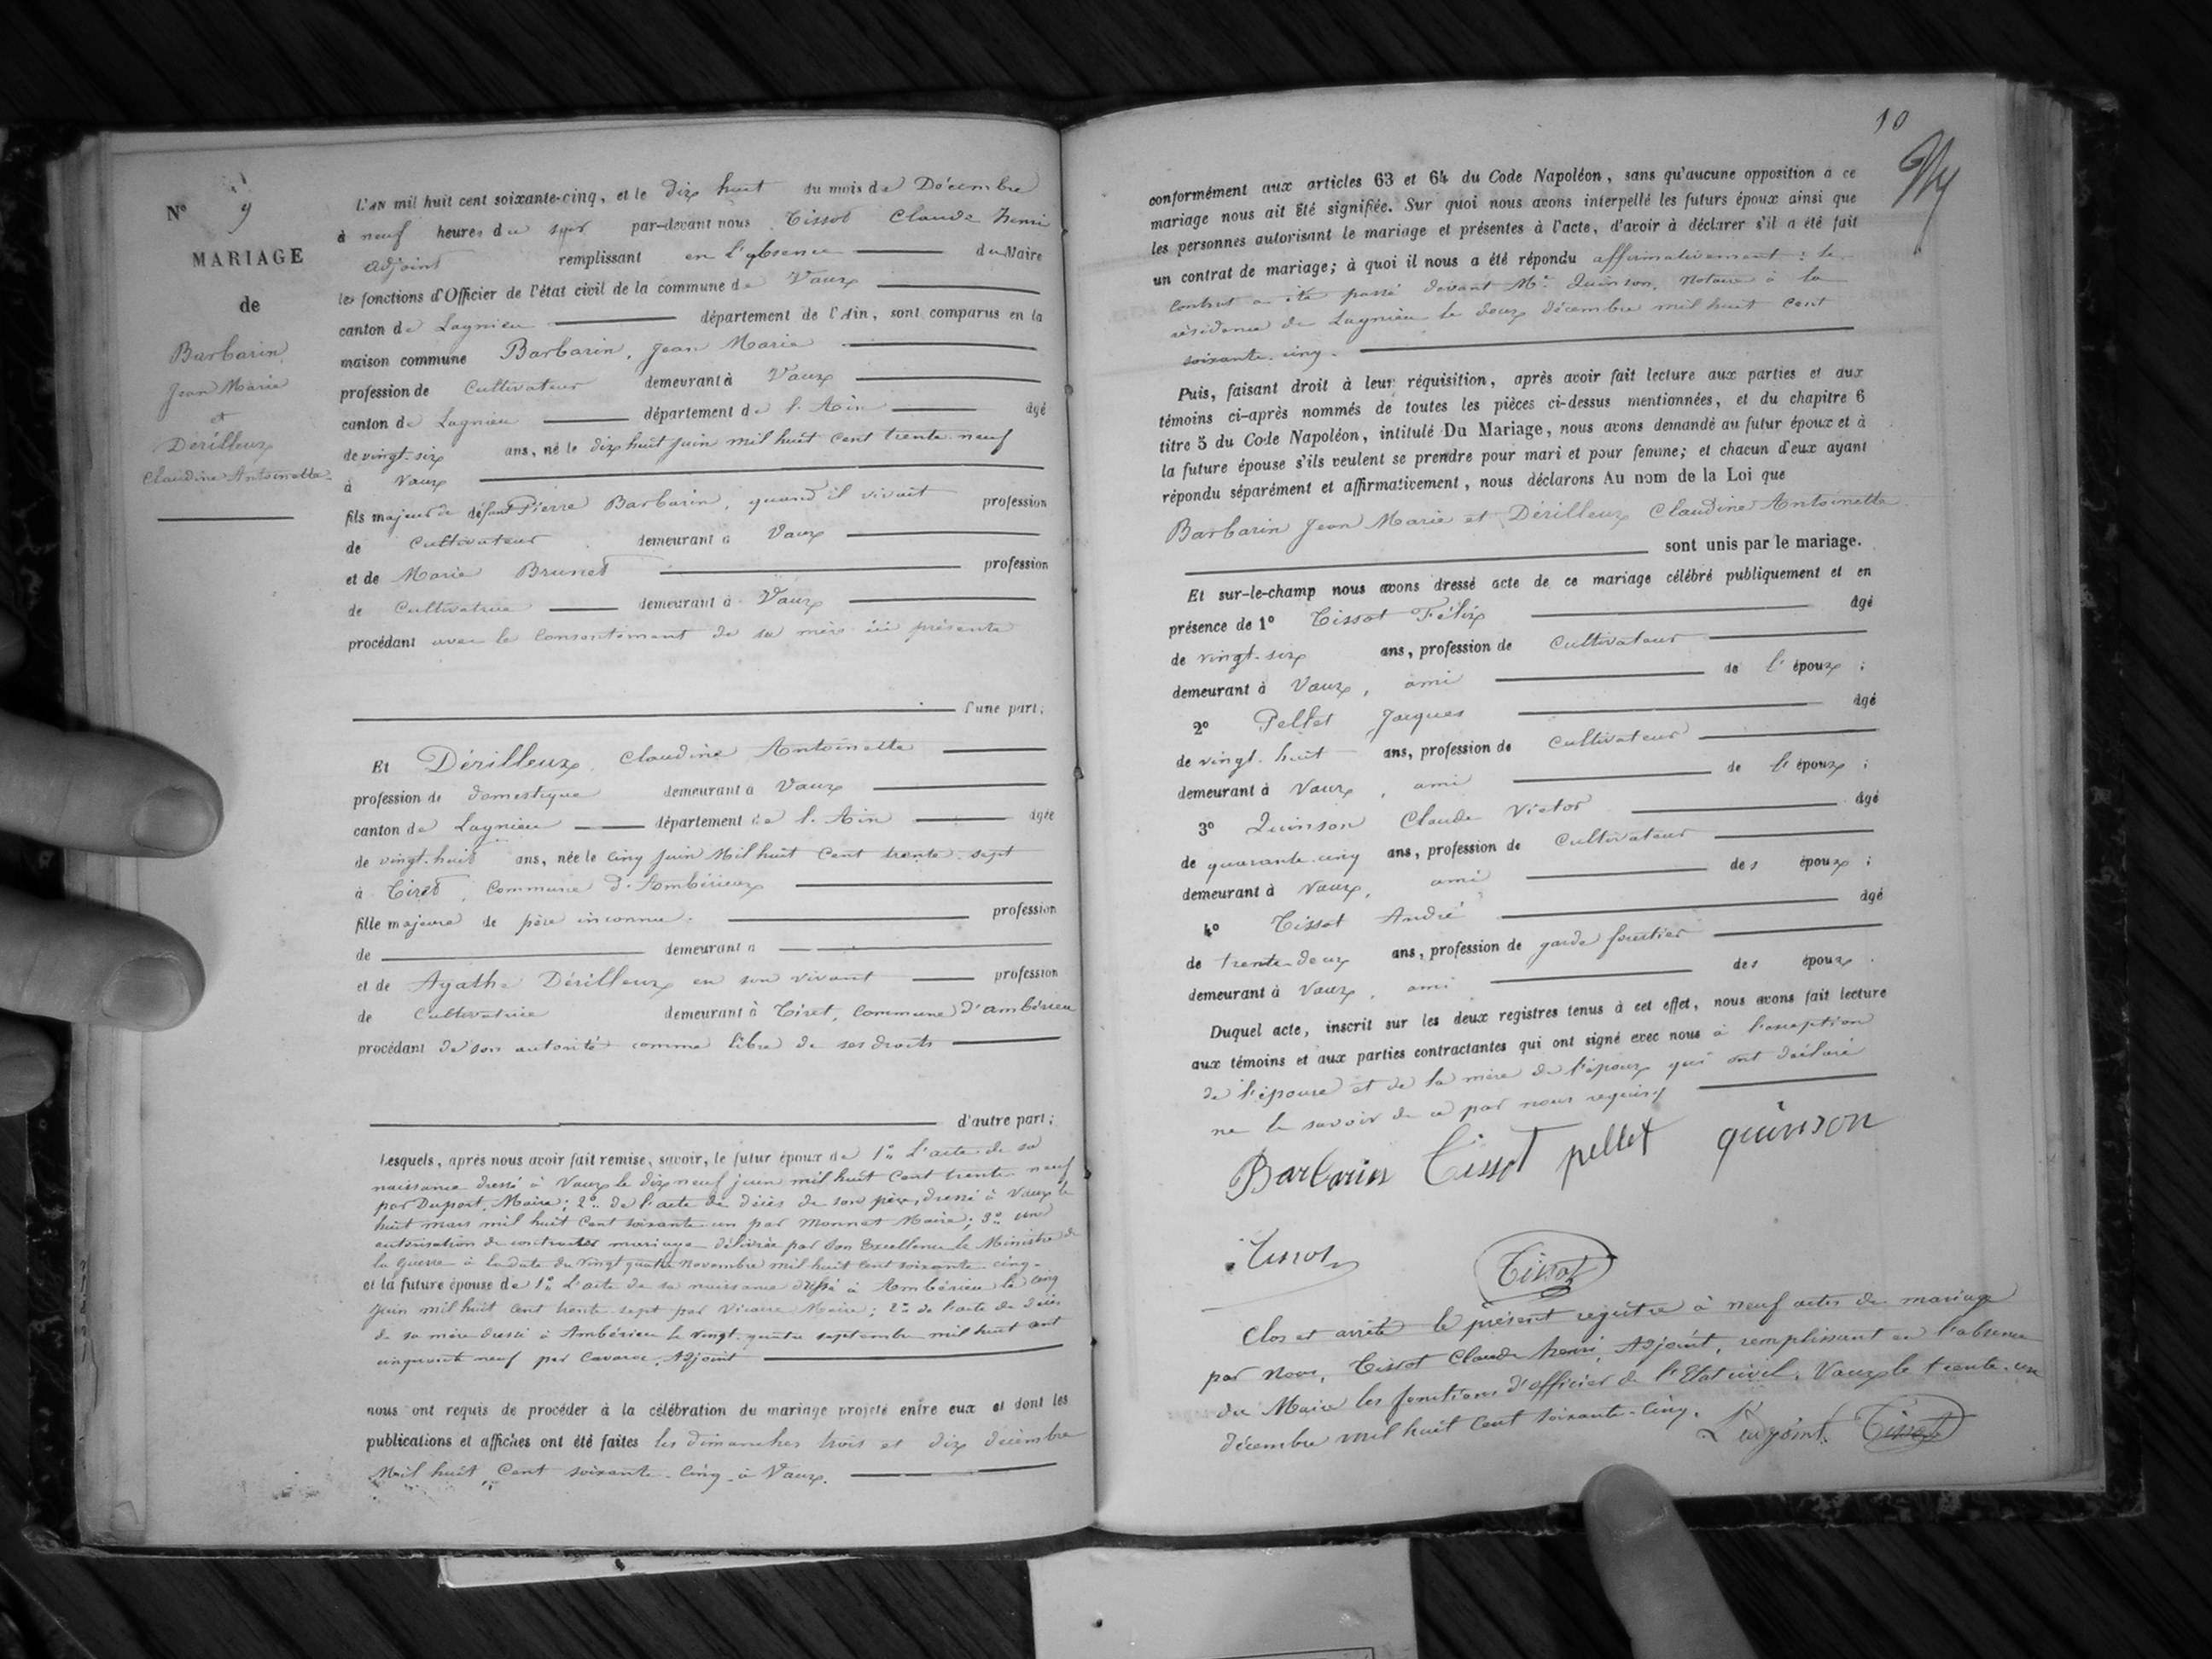 N° 9
MARIAGE
de
Barbarin,
Jean Marie
et
Dérilleux
Claudine Antoinette
L'AN mil huit cent soixante-cinq, et le dix huit du mois de Décembre
à neuf heures du soir par-devant nous Tissot Claude henri
adjoint remplissant en l'absence du Maire
les fonctions d'Officier de l'état civil de la commune de Vaux
canton de Lagnieu département de l'Ain, sont comparus en la
maison commune Barbarin, Jean Marie
profession de Cultivateur demeurant à Vaux
canton de Lagnieu département de l'Ain âgé
de vingt-six ans, né le dix huit juin mil huit cent trente-neuf
à Vaux
fils majeur de défunt Pierre Barbarin, quand il vivait profession
de Cultivateur demeurant à Vaux
et de Marie Brunet profession
de Cultivatrice demeurant à Vaux
procédant avec le Consentement de sa mère ici présente
d'une part;
Et Dérilleux, Claudine Antoinette
profession de domestique demeurant à Vaux
canton de Lagnieu département de l'Ain âgée
de vingt-huit ans, née le cinq juin Mil huit Cent trente-sept
à Tiret, Commune d'Ambérieux
fille majeure de père inconnu. profession
de demeurant à
et de Agathe Dérilleux en son vivant profession
de Cultivatrice demeurant à Tiret, Commune d'ambérieu
procédant de son autorité comme libre de ses droits
d'autre part;
Lesquels, après nous avoir fait remise, savoir, le futur époux de 1° L'acte de sa
naissance dressé à Vaux le dix neuf juin mil huit Cent trente-neuf
par Duport, Maire; 2° de l'acte de décès de son père, dressé à Vaux le
huit mars mil huit Cent soixante-un par Monnet Maire; 3° une
autorisation de contracter mariage délivrée par Son Excellence le Ministre de
la Guerre à la date du vingt quatre Novembre mil huit Cent soixante-cinq.
et la future épouse de 1° L'acte de sa naissance dressé à Ambérieu le cinq
Juin mil huit Cent trente-sept par Vicaire Maire; 2° de l'acte de décès
de sa mère dressé à Ambérieu le vingt-quatre septembre mil huit cent
cinquante neuf par Cavaroc, Adjoint
nous ont requis de procéder à la célébration du mariage projeté entre eux et dont les
publications et affiches ont été faites les dimanches trois et dix décembre
Mil huit Cent soixante-cinq à Vaux.
10
conformément aux articles 63 et 64 du Code Napoléon, sans qu'aucune opposition à ce
mariage nous ait été signifiée. Sur quoi nous avons interpellé les futurs époux ainsi que
les personnes autorisant le mariage et présentes à l'acte, d'avoir à déclarer s'il a été fait
un contrat de mariage; à quoi il nous a été répondu affirmativement: le
Contrat a été passé devant Me Quinson, Notaire à la
résidence de Lagnieu le deux décembre mil huit Cent
soixante-cinq.
Puis, faisant droit à leur réquisition, après avoir fait lecture aux parties et aux
témoins ci-après nommés de toutes les pièces ci-dessus mentionnées, et du chapitre 6
titre 5 du Code Napoléon, intitulé Du Mariage, nous avons demandé au futur époux et à
la future épouse s'ils veulent se prendre pour mari et pour femme; et chacun d'eux ayant
répondu séparément et affirmativement, nous déclarons Au nom de la Loi que
Barbarin Jean Marie et Dérilleux Claudine Antoinette
sont unis par le mariage.
Et sur-le-champ nous avons dressé acte de ce mariage célébré publiquement et en
présence de 1° Tissot Félix âgé
de vingt-six ans, profession de Cultivateur
demeurant à Vaux, ami de l'époux;
2° Pellet Jacques âgé
de vingt-huit ans, profession de Cultivateur
demeurant à Vaux, ami de l'époux;
3° Quinson Claude Victor âgé
de quarante-cinq ans, profession de Cultivateur
demeurant à Vaux, ami des époux;
4° Tissot André âgé
de trente-deux ans, profession de garde forestier
demeurant à Vaux, ami des époux.
Duquel acte, inscrit sur les deux registres tenus à cet effet, nous avons fait lecture
aux témoins et aux parties contractantes qui ont signé avec nous à l'exception
de l'épouse et de la mère de l'époux qui ont déclaré
ne le savoir de ce par nous requis
Barbarin Tissot pellet quinson
Tissot Tissot
Clos et arrêté le présent registre à neuf actes de mariage
par Nous, Tissot Claude henri, Adjoint, remplissant en l'absence
du Maire les fonctions d'officier de l'Etat civil. Vaux le trente-un
décembre mil huit Cent soixante-cinq. L'adjoint. Tissot